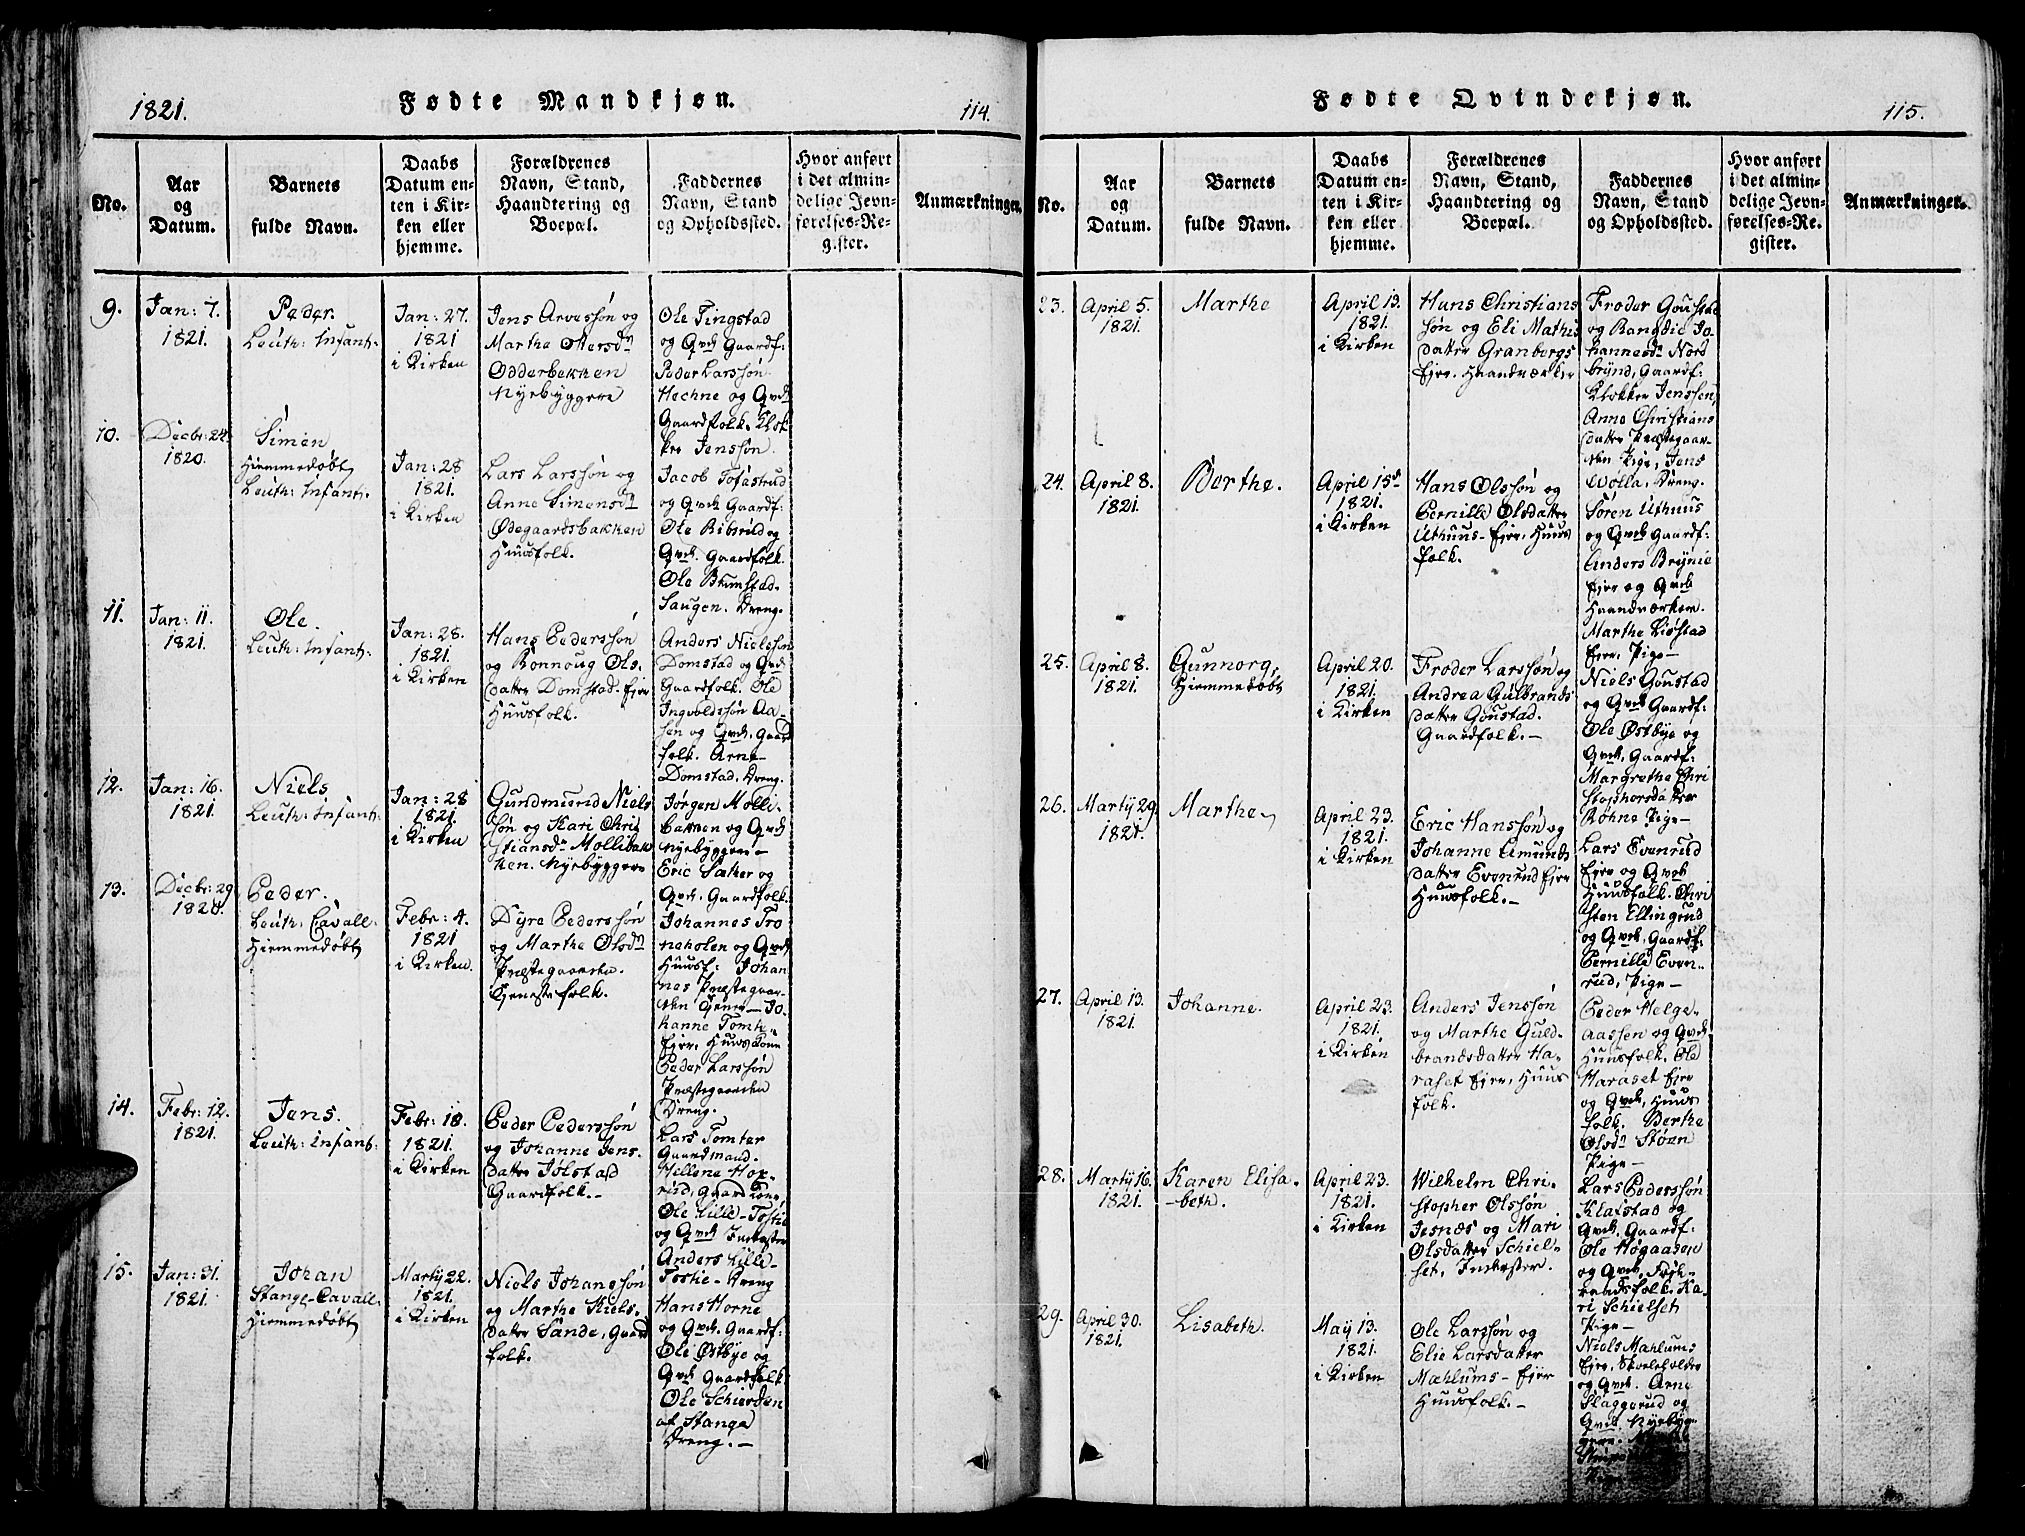 1821.
Fødte Mandkjøn.
114.
No.
Aar
og
Datum.
Barnets
fulde Navn.
Daabs
Datum en-
ten i Kir-
ken eller
hjemme.
Forældrenes
Navn, Stand,
Haandtering og
Boepæl.
Faddernes
Navn, Stand
og Opholdssted.
Hvor anført
i det almin-
delige Jevn-
førelses-Re-
gister.
Anmærkninger.
9.
Jan: 7.
1821.
Peder.
Leuth: Infant:
Jan: 27.
1821
i Kirken
Jens Arvessøn og
Marthe Ottersdr
Odderbekken
Nyebyggere
Ole Tingstad
og Qvck Gaardf:
Peder Larssøn
Hechne og Qvck
Gaardfolk. Klok
ker Jenssøn.
10.
Decbr: 24.
1820.
Simen
Hiemmedøbt
Leuth: Infant:
Jan: 28
1821.
i Kirken
Lars Larssøn og
Anne Simensdr
Ødegaardsbakken
Huusfolk.
Jacob Tofastrud
og Qvck Gaardf:
Ole Ribsrud og
Qvck. Gaardfolk.
Ole Blumstad-
Haugen. Dreng.
11.
Jan: 11.
1821.
Ole.
Leuth: Infant:
Jan: 28.
1821.
i Kirken
Hans Pederssøn
og Ronnoug Ols-
datter Domstad. Ejer
Huusfolk.
Anders Nielssøn
Domstad og Qvck
Gaardfolk. Ole
Ingvoldssøn Aa-
sen og Qvck. Gaard
folk. Arne
Domstad, Dreng.
12.
Jan: 16.
1821.
Niels
Leuth: Infant:
Jan: 28
1821.
i Kirken
Gundmund Niels
søn og Kari Chri
stiansdr Mollibak
ken. Nyebyggere
Jørgen Molli-
bakken og Qvck
Nyebyggere-
Eric Sæther og
Qvck. Gaardfolk.
13.
Decbr: 29
1820.
Peder.
Leuth: Cavall:
Hiemmedøbt
Febr: 4.
1821
i Kirken.
Dyre Pederssøn
og Marthe Olsdr
Præstegaarden.
Tjenestefolk.
Johannes Tro
neholen og Qvck
Huusf: Johan
nes Præstegaar-
den Tjener- Jo-
hanne Tomt-
Ejer, Huuskone
Peder Larssøn
Præstegaarden
Dreng.
14.
Febr: 12.
1821.
Jens.
Leuth: Infant:
Febr: 18.
1821.
i Kirken
Peder Pederssøn
og Johanne Jens-
datter Jølstad
Gaardfolk.-
Lars Tomter
Gaardmand.
Hellene Hox-
rud, Gaard Kone,
Ole Lille-Tostie
og Qvck Inderster
Anders Lille-
Tostie- Dreng
15.
Jan: 31.
1821.
Johan
Stange-Cavall:
Hiemmedøbt
Martÿ 22.
1821.
i Kirken
Niels Johanssøn
og Marthe Niels-
datter Sande, Gaard
folk.
Hans Horne
og Qvck. Gaardf:
Ole Østbye og
Qvck Gaardfolk
Ole Schierden
af Stange
Dreng.-
Fødte Qvindekjøn.
115.
No.
Aar
og
Datum.
Barnets
fulde Navn.
Daabs
Datum en-
ten i Kir-
ken eller
hjemme.
Forældrenes
Navn, Stand,
Haandtering og
Boepæl.
Faddernes
Navn, Stand
og Opholdssted.
Hvor anført
i det almin-
delige Jevn-
førelses-Re-
gister.
Anmærkninger.
23.
April 5.
1821.
Marthe
April 13.
1821.
i Kirken
Hans Christians
søn og Eli Mathis
datter Granbergs
Ejer. Haandværker
Froder Goustad
og Ranedie Jo
hannesdr Nord
brÿnd, Gaardf:
Klokker Jenssen,
Anne Christians
datter Præstegaar-
den Pige, Jens
Wolla, Dreng.
24.
April 8.
1821.
Berthe.
April 15de
1821.
i Kirken
Hans Olssøn og
Pernille Olsdatter
Uthuus- Ejer, Huus
folk.
Søren Uthuus
og Qvck Gaardf:
Anders Brÿnie
Ejer og Qvck
Haandværker.
Marthe Liøstad
Ejer, Pige-
25.
April 8.
1821.
Gunnorg,
Hiemmedøbt
April 20.
1821.
i Kirken
Froder Larssøn og
Andrea Gulbrands
datter Goustad.
Gaardfolk.-
Niels Goustad
og Qvck Gaardf:
Ole Østbye og
Qvck. Gaardf:
Margrethe Chri
stophersdatter
Røhne Pige-
26.
Martÿ 29.
1821.
Marthe
April 23.
1821.
i Kirken
Eric Hanssøn og
Johanne Amunds
datter Evenrud Ejer
Huusfolk.-
Lars Evenrud
Ejer og Qvck
Huusfolk. Chri
sten Ellingrud
og Qvck. Gaardf.
Pernille Even-
rud, Pige-
27.
April 13.
1821.
Johanne.
April 23.
1821.
i Kirken
Anders Jenssøn
og Marthe Guld-
brandsdatter Ha-
raset Ejer, Huus
folk.
Peder Helge-
aassen og Qvck
Huusfolk. Ole
Haraset Ejer
og Qvck, Huus
folk. Berthe
Olsdr Støen
Pige-
28.
Martÿ 16.
1821.
Karen Elisa-
-beth.
April 23.
1821.
i Kirken
Wilhelm Chri-
stopher Olssøn
Jesnæs og Mari
Olsdatter Schiel-
set, Inderster.
Lars Pederssøn
Klatstad og
Qvck. Gaardf:
Ole Høgaasen
og Qvck,
Ka-
ri Schielset
Pige-
29.
April 30.
1821.
Lisabeth.
Maÿ 13.
1821.
i Kirken
Ole Larssøn og
Elie Larsdatter
Mæhlums- Ejer
Huusfolk.-
Niels Mæhlums
Ejer, Skoleholder
og Qvck. Arne
Slaggerud og
Qvck Nyebÿg-
gere.
Pige